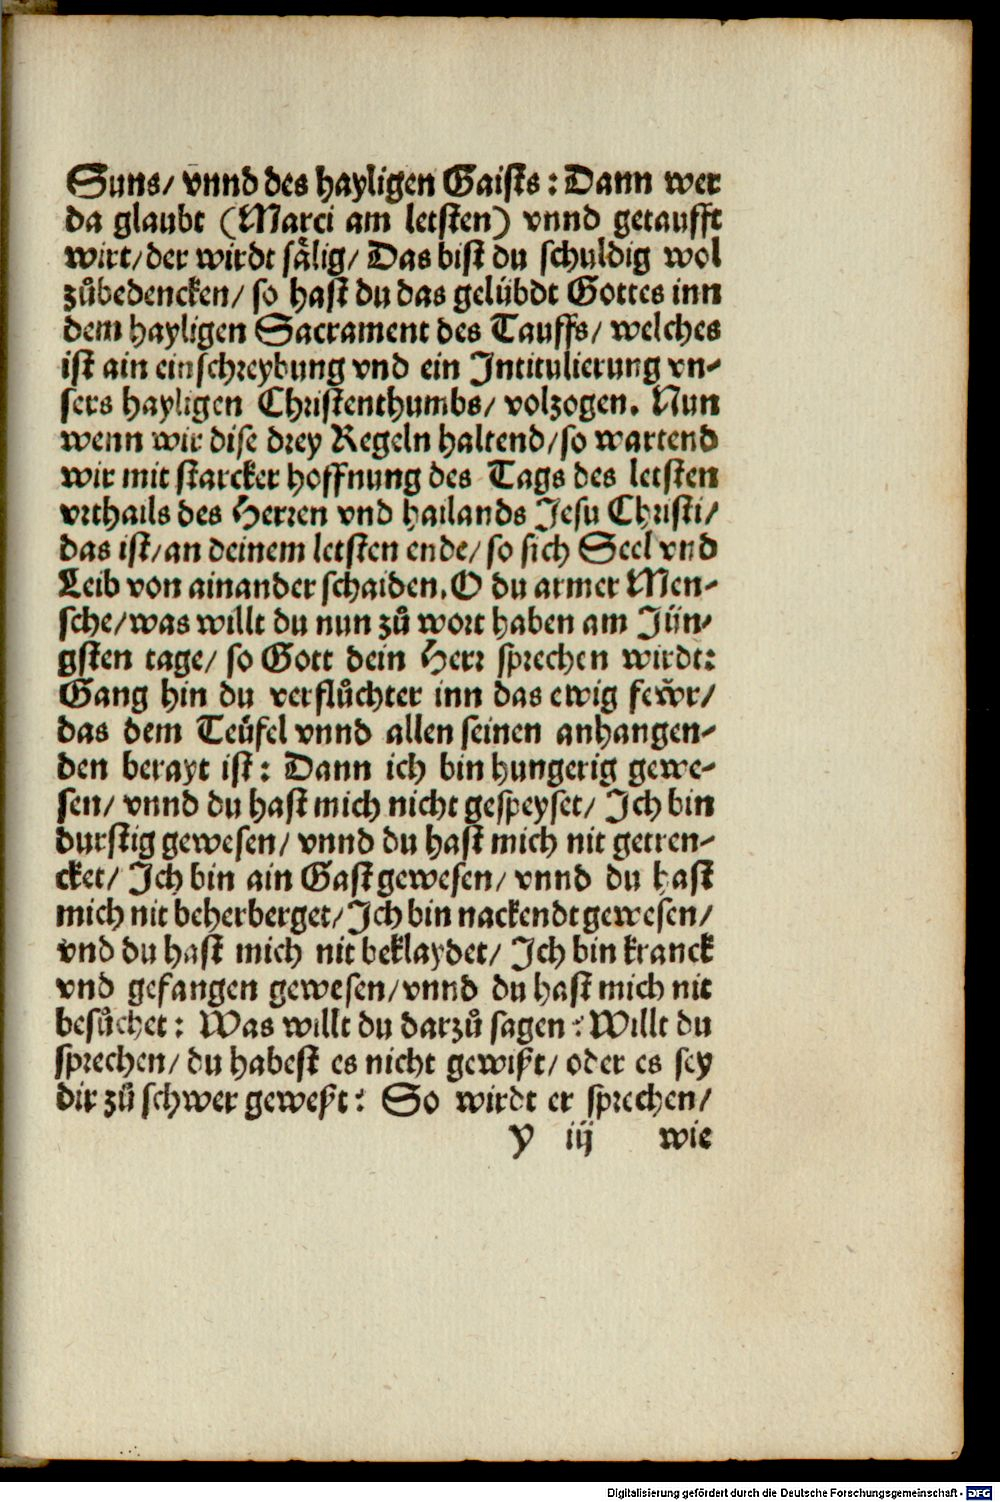 Suns/ vnnd des hayligen Gaists: Dann wer
da glaubt (Marci am letsten) vnnd getaufft
wirt/ der wirdt sälig/ Das bist du schuldig wol
zůbedencken/ so hast du das gelübdt Gottes inn
dem hayligen Sacrament des Tauffs/ welches
ist ain einschreybung vnd ein Intitulierung vn-
sers hayligen Christenthumbs/ volzogen. Nun
wenn wir dise drey Regeln haltend/ so wartend
wir mit starcker hoffnung des Tags des letsten
vrthails des Herren vnd hailands Jesu Christi/
das ist/ an deinem letsten ende/ so sich Seel vnd
Leib von ainander schaiden. O du armer Men-
sche/ was willt du nun zů wort haben am Jün-
gsten tage/ so Gott dein Herr sprechen wirdt:
Gang hin du verflůchter inn das ewig fewr/
das dem Teüfel vnnd allen seinen anhangen-
den berayt ist: Dann ich bin hungerig gewe-
sen/ vnnd du hast mich nicht gespeyset/ Ich bin
durstig gewesen/ vnnd du hast mich nit getren-
cket/ Ich bin ain Gast gewesen/ vnnd du hast
mich nit beherberget/ Ich bin nackendt gewesen/
vnd du hast mich nit beklaydet/ Ich bin kranck
vnd gefangen gewesen/ vnnd du hast mich nit
besůchet: Was willt du darzů sagen: Willt du
sprechen/ du habest es nicht gewißt/ oder es sey
dir zů schwer geweßt: So wirdt er sprechen/
y iij wie
Digitalisierung gefördert durch die Deutsche Forschungsgemeinschaft - DFG